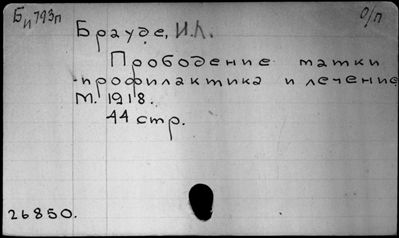 Би793п
О/П
Брауде, И.Л.
Прободение матки
-профилактика и лечение
М. 1918.
44 стр.
26850.